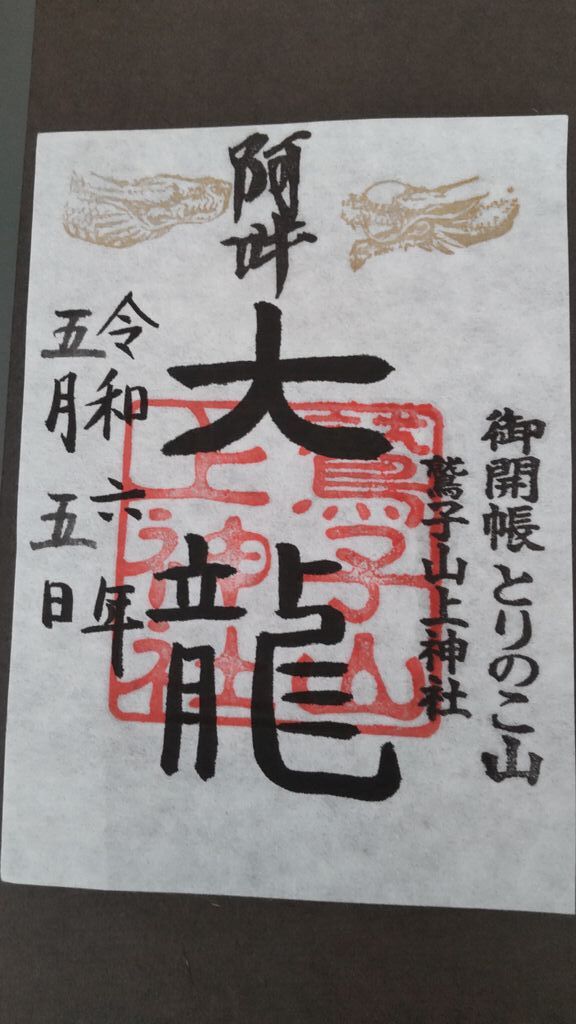 御開帳とりのこ山
鷲子山上神社
阿吽
大龍
鷲子山
上神社
令和六年
五月五日